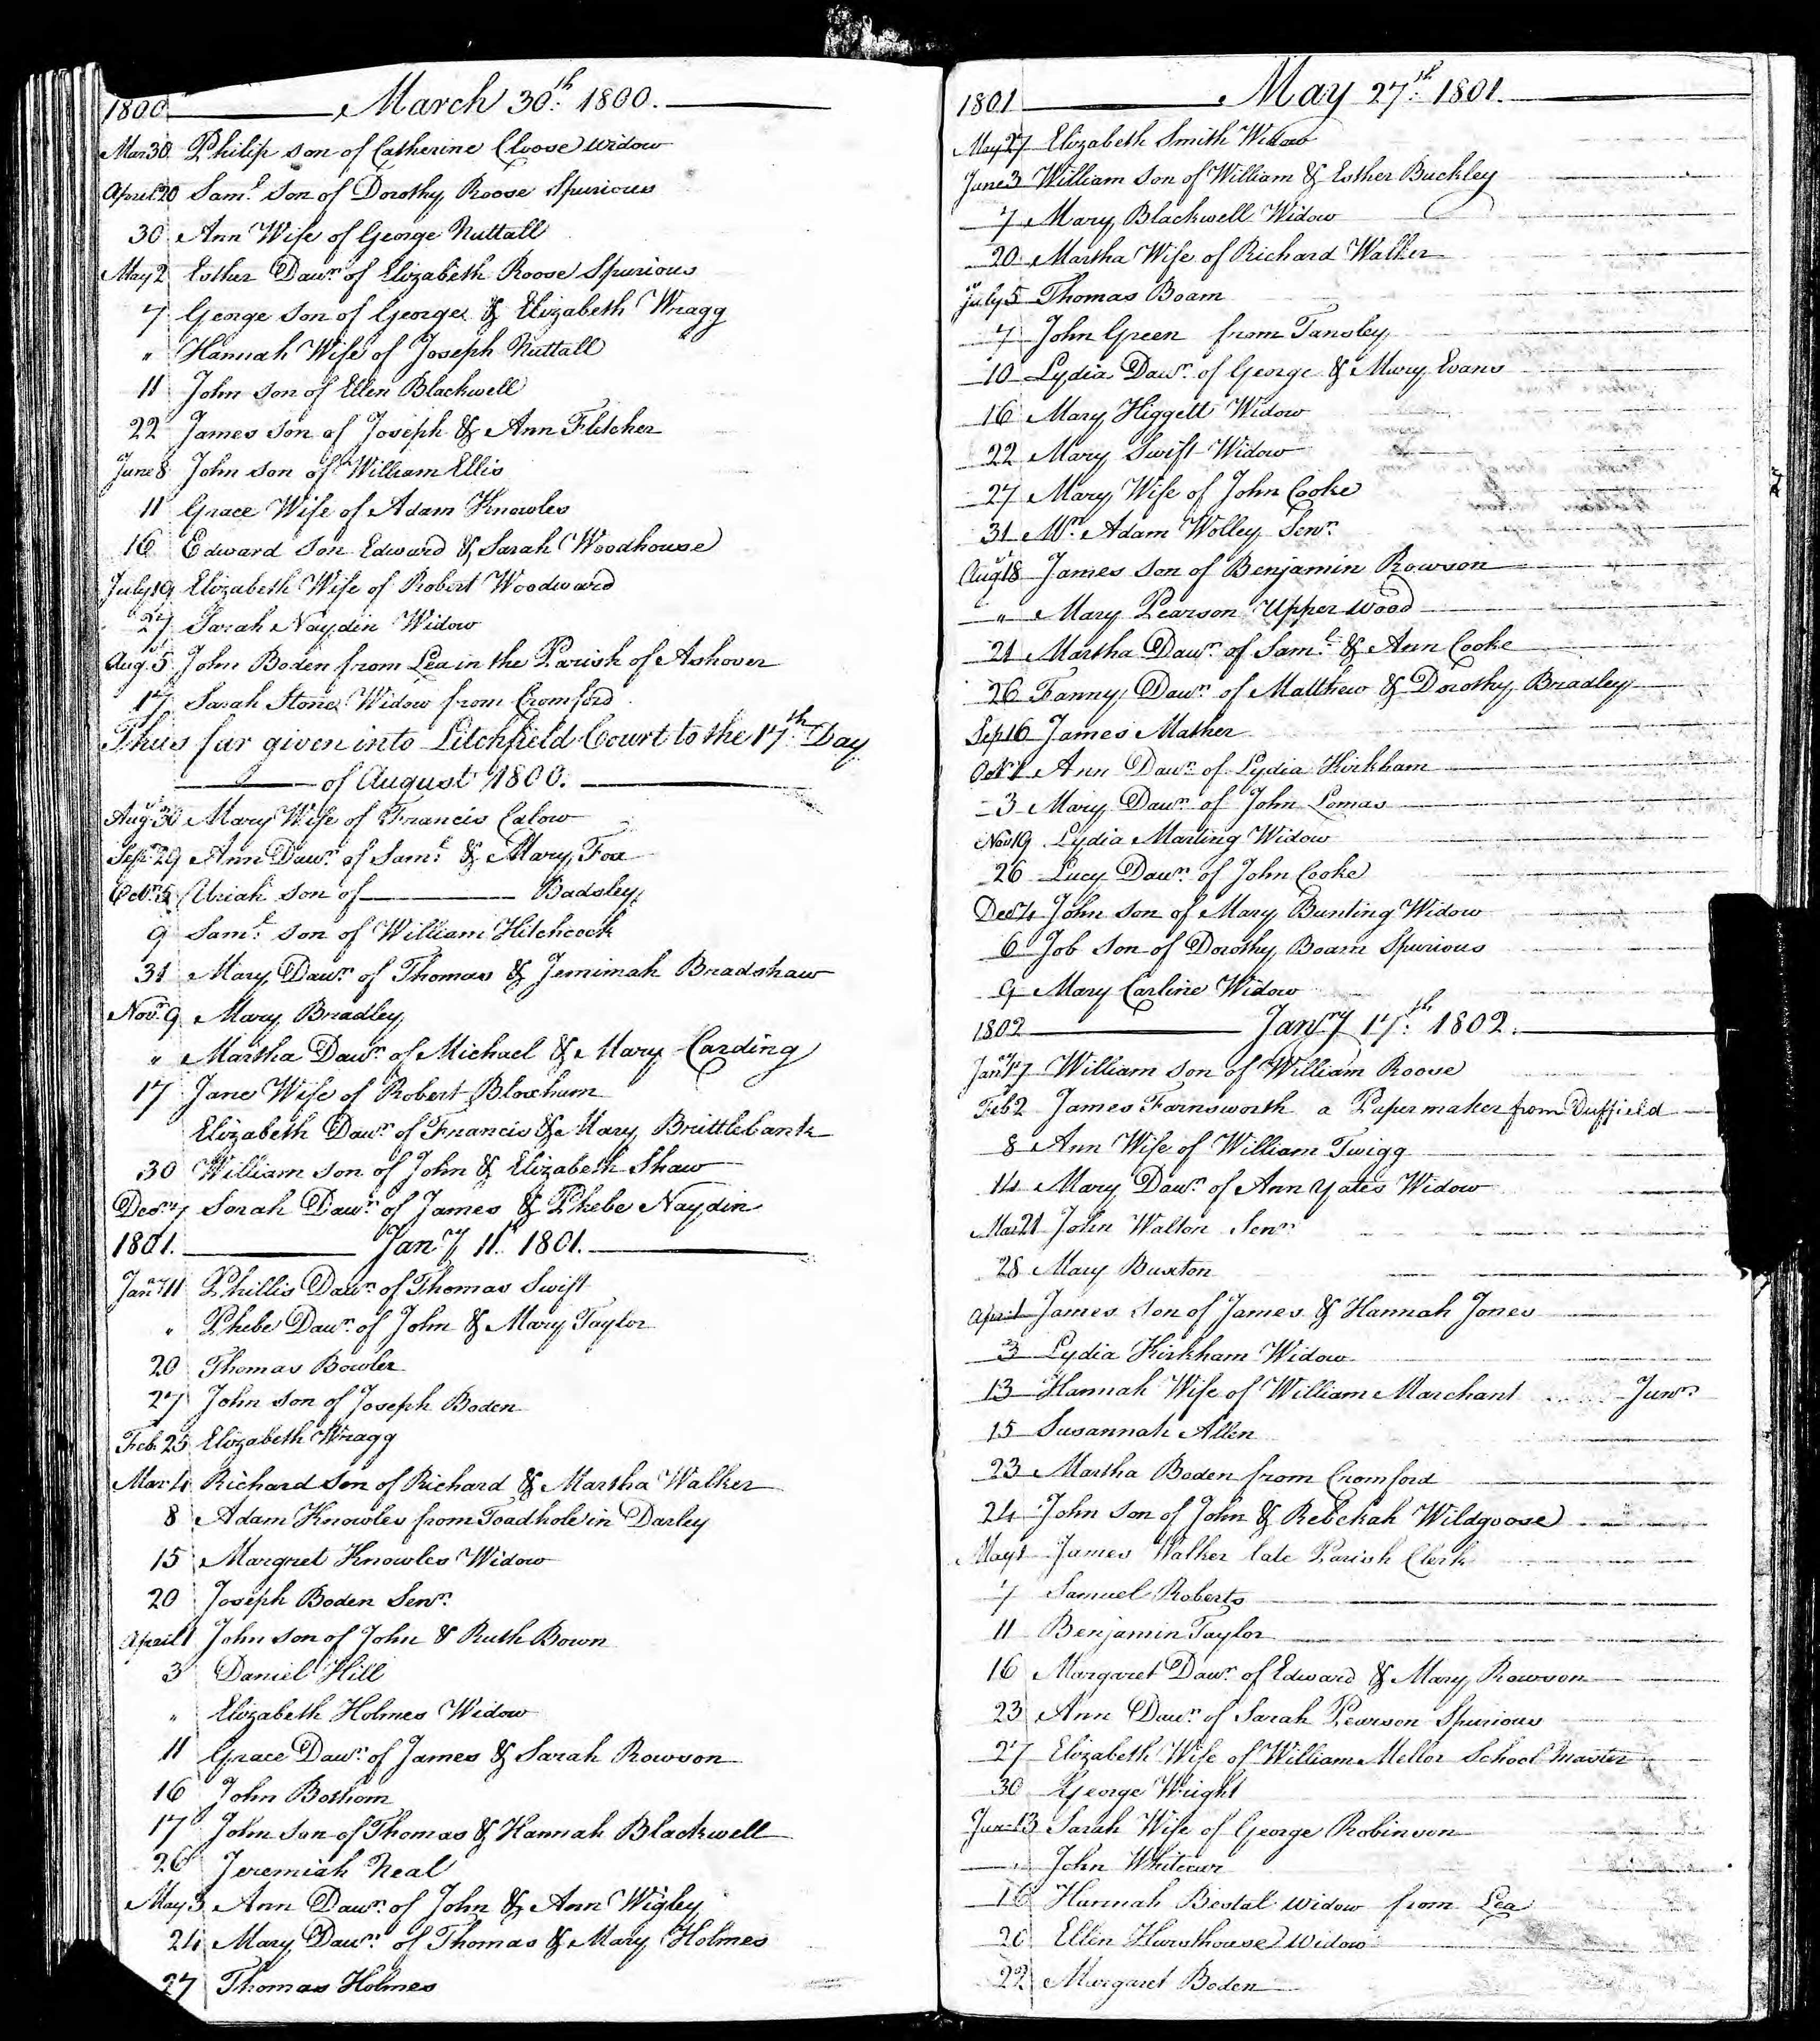 1800 March 30th 1800.
Mar 30 Philip son of Catherine Cloose widow
April 20 Saml son of Dorothy Roose Spurious
30 Ann Wife of George Nuttall
May 2 Esther Dawr of Elizabeth Roose Spurious
7 George son of George & Elizabeth Wragg
" Hannah Wife of Joseph Nuttall
11 John son of Ellen Blackwell
22 James son of Joseph & Ann Fletcher
June 8 John son of William Ellis
11 Grace Wife of Adam Knowles
16 Edward son Edward & Sarah Woodhouse
July 19 Elizabeth Wife of Robert Woodward
27 Sarah Naydin Widow
Augst 5 John Boden from Lea in the Parish of Ashover
17 Sarah Stone Widow from Cromford
Thus far given into Litchfield Court to the 17th Day
of August 1800.
Augst 30 Mary Wife of Francis Calow
Sepr 29 Ann Dawr of Saml & Mary Fox
Octr 5 Uriah son of Badsley
9 Saml son of William Hitchcock
31 Mary Dawr of Thomas & Jemimah Bradshaw
Novr 9 Mary Bradley
" Martha Dawr of Michael & Mary Carding
17 Jane Wife of Robert Bloxhum
Elizabeth Dawr of Francis & Mary Brittlebank
30 William son of John & Elizabeth Shaw
Decr 7 Sarah Dawr of James & Phebe Naydin
1801. Jany 11th 1801.
Jany 11 Phillis Dawr of Thomas Swift
" Phebe Dawr of John & Mary Taylor
20 Thomas Bowler
27 John son of Joseph Boden
Feb 25 Elizabeth Wragg
Mar 4 Richard son of Richard & Martha Walker
8 Adam Knowles from Toadhole in Darley
15 Margret Knowles Widow
20 Joseph Boden Senr
April 1 John son of John & Ruth Bown
3 Daniel Hill
" Elizabeth Holmes Widow
11 Grace Dawr of James & Sarah Rowson
16 John Bothom
17 John son of Thomas & Hannah Blackwell
26 Jeremiah Neal
May 3 Ann Dawr of John & Ann Wigley
24 Mary Dawr of Thomas & Mary Holmes
27 Thomas Holmes
1801 May 27th 1801.
May 27 Elizabeth Smith Widow
June 3 William son of William & Esther Buckley
7 Mary Blackwell Widow
20 Martha Wife of Richard Walker
July 5 Thomas Boam
7 John Green from Tansley
10 Lydia Dawr of George & Mary Evans
16 Mary Higgett Widow
22 Mary Swift Widow
27 Mary Wife of John Cooke
31 Mr Adam Wolley Senr
Augst 18 James son of Benjamin Rowson
" Mary Pearson Upper wood
21 Martha Dawr of Saml & Ann Cooke
26 Fanny Dawr of Matthew & Dorothy Bradley
Sep 16 James Mather
Octr 1 Ann Dawr of Lydia Kirkham
3 Mary Dawr of John Lomas
Nov 19 Lydia Marling Widow
26 Lucy Dawr of John Cooke
Decr 4 John son of Mary Bunting Widow
6 Job son of Dorothy Boam Spurious
9 Mary Carline Widow
1802 Jany 17th 1802.
Jany 17 William son of William Roose
Feb 2 James Farnsworth a Papermaker from Duffield
8 Ann Wife of William Twigg
14 Mary Dawr of Ann Yates Widow
Mar 21 John Walton Senr
28 Mary Buxton
April 1 James son of James & Hannah Jones
3 Lydia Kirkham Widow
13 Hannah Wife of William Marchant Junr
15 Susannah Allen
23 Martha Boden from Cromford
24 John son of John & Rebekah Wildgoose
May 1 James Walker late Parish Clerk
7 Samuel Roberts
11 Benjamin Taylor
16 Margaret Dawr of Edward & Mary Rowson
23 Ann Dawr of Sarah Pearson Spurious
27 Elizabeth Wife of William Mellor School master
30 George Wright
Jun 13 Sarah Wife of George Robinson
" John
16 Hannah Bestal widow from Lea
20 Ellen Hursthouse widow
22 Margaret Boden